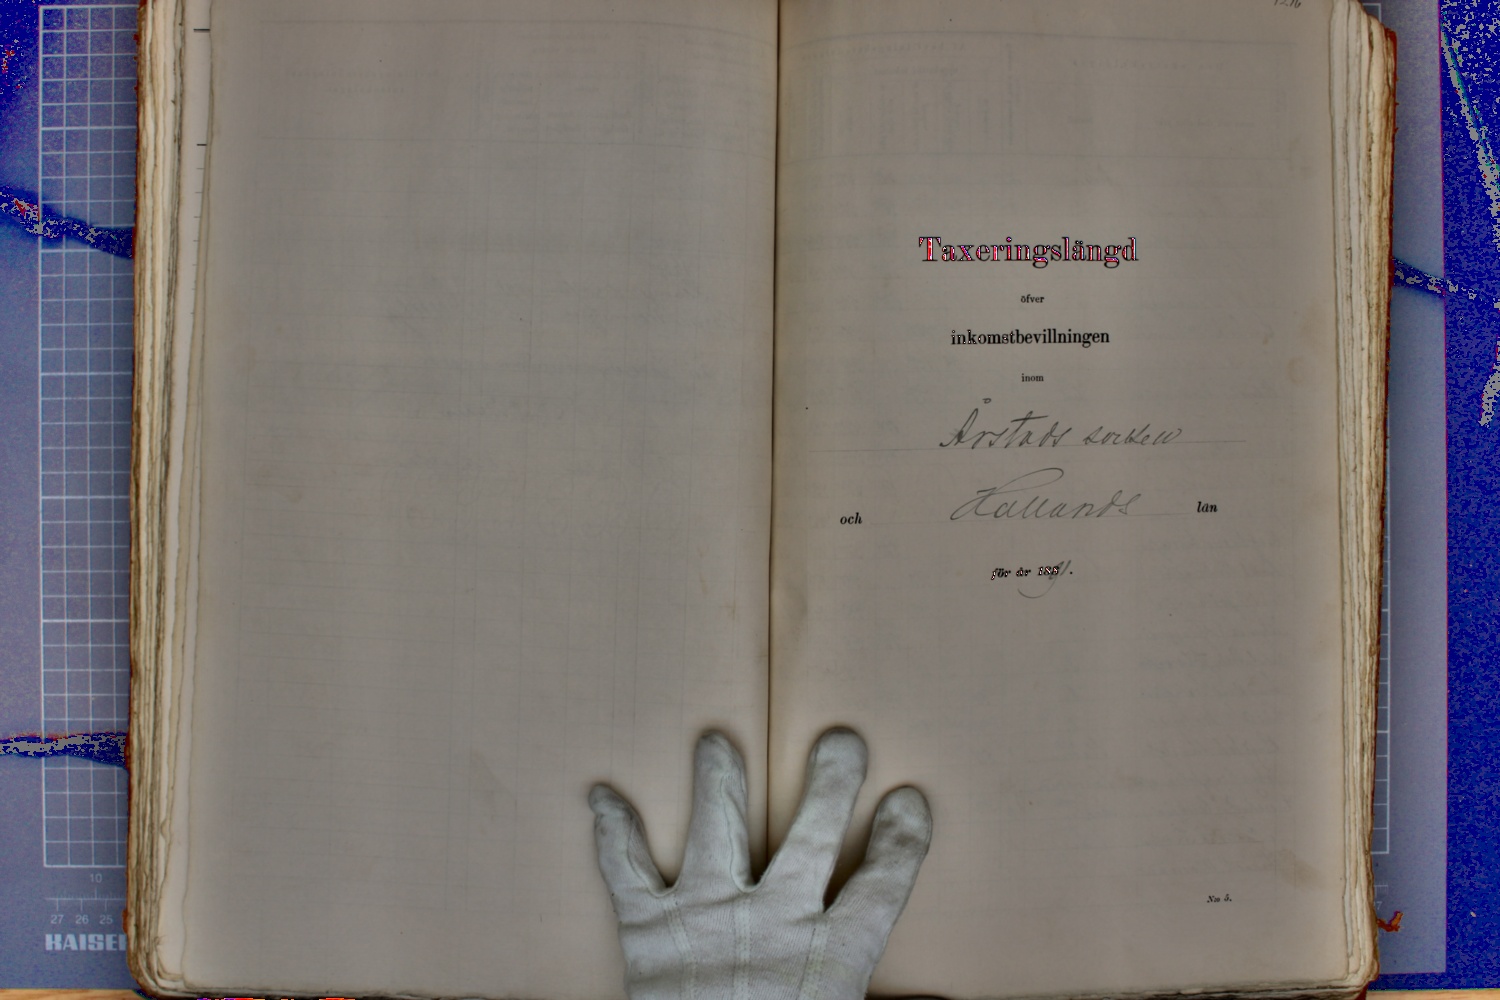 Taxeringslängd
öfver
inkomstbevillningen
inom
Årstads socken
och Hallands län
för år 1891.
No 5.
10
27 26 25
KAISER